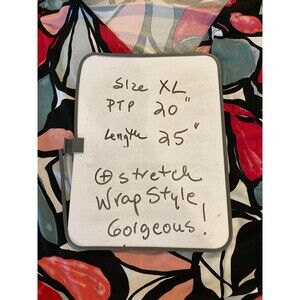 Size XL
PTP 20"
Length 25"
⊕ stretch
Wrap Style
Gorgeous!